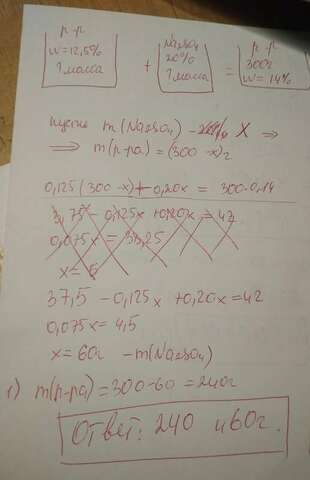 р-р
W=12,5%
? масса
+
Na2SO4
20%
? масса
=
р-р
300г
W=14%
пусть m(Na2SO4) - X ⇒
⇒ m(р-ра) = (300-x)г
0,125(300-x)+0,20x = 300·0,14
3,75 - 0,125x + 0,20x = 42
0,075x = 38,25
x = 5
37,5 - 0,125x + 0,20x = 42
0,075x = 4,5
x = 60г - m(Na2SO4)
1) m(р-ра) = 300-60 = 240г
Ответ: 240 и 60г.